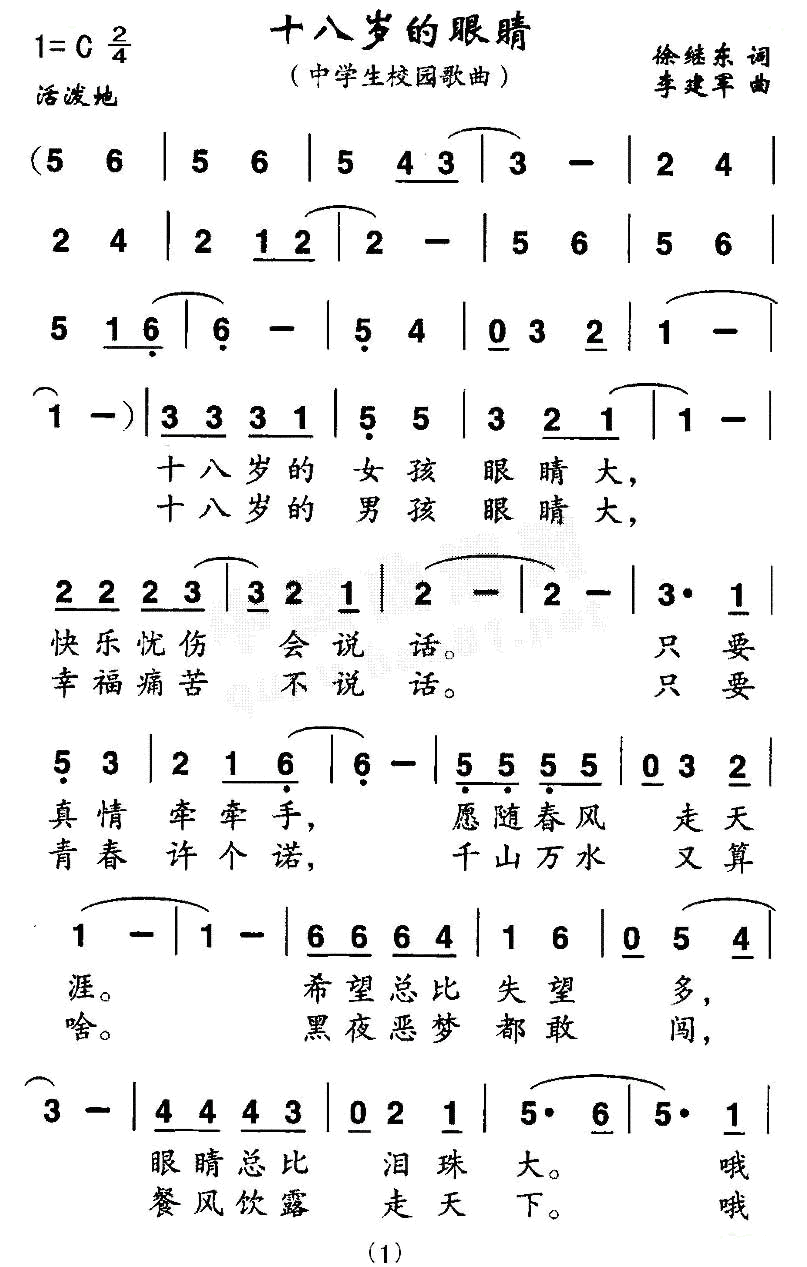 十八岁的眼睛
1=C 2/4
（中学生校园歌曲）
徐继东 词
李建军 曲
活泼地
(5 6 | 5 6 | 5 4 3 | 3 – | 2 4 |
2 4 | 2 1 2 | 2 – | 5 6 | 5 6 |
5 1 6 | 6 – | 5 4 | 0 3 2 | 1 – |
1 – ) | 3 3 3 1 | 5 5 | 3 2 1 | 1 – |
十八岁的 女孩 眼睛大，
十八岁的 男孩 眼睛大，
2 2 2 3 | 3 2 1 | 2 – | 2 – | 3· 1 |
快乐忧伤 会说 话。 只要
幸福痛苦 不说 话。 只要
5 3 | 2 1 6 | 6 – | 5 5 5 5 | 0 3 2 |
真情 牵牵手， 愿随春风 走天
青春 许个诺， 千山万水 又算
1 – | 1 – | 6 6 6 4 | 1 6 | 0 5 4 |
涯。 希望总比 失望 多，
啥。 黑夜恶梦 都敢 闯，
3 – | 4 4 4 3 | 0 2 1 | 5· 6 | 5· 1 |
眼睛总比 泪珠 大。 哦
餐风饮露 走天 下。 哦
(1)